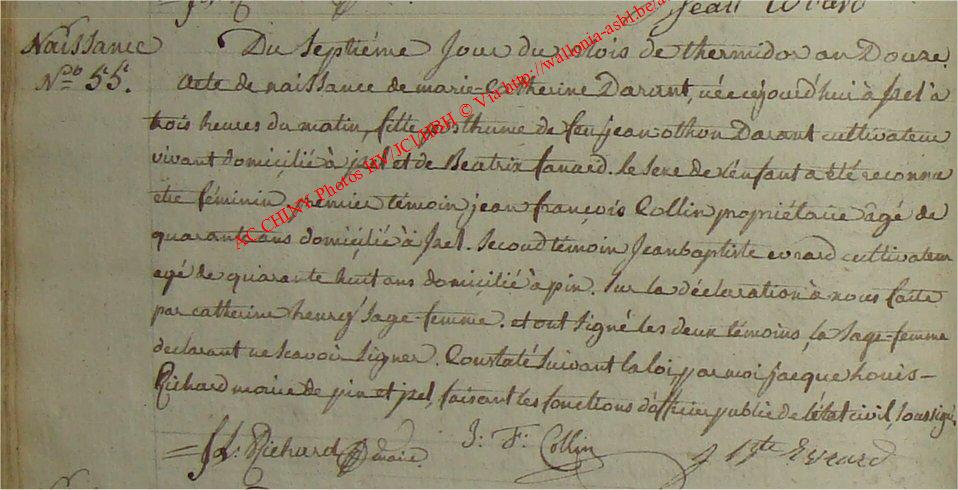 Jean Evrard
Naissance
N.º 55.
Du Septiéme Jour du Mois de thermidor an Douze.
Acte de naissance de marie-Catherine Darant, née cejourd'hui à Izel à
trois heures du matin, fille posthume de feu jean othon Darant cultivateur
vivant domicilié à jzel et de Beatrix fanard. le sexe de l'enfant a été reconnu
etre féminin. premier témoin, jean françois Collin propriétaire âgé de
quarant ans domicilié à Izel. Second témoin Jeanbaptiste evrard cultivateur
agé de quarante huit ans domicilié à pin. Sur la déclaration à nous faite
par catherine henry sage-femme. et ont signé les deux témoins, la sage-femme
declarant ne scavoir signer. Constaté suivant la loi, par moi jacque louis-
Richard maire de pin et jzel, faisant les fonctions d'officier public de l'état civil, soussigné.
J L: Richard maire.
J: F: Collin
J Bte Evrard
AC CHINY Photos HV/JCl/HBH © Via http://wallonia-asbl.be/